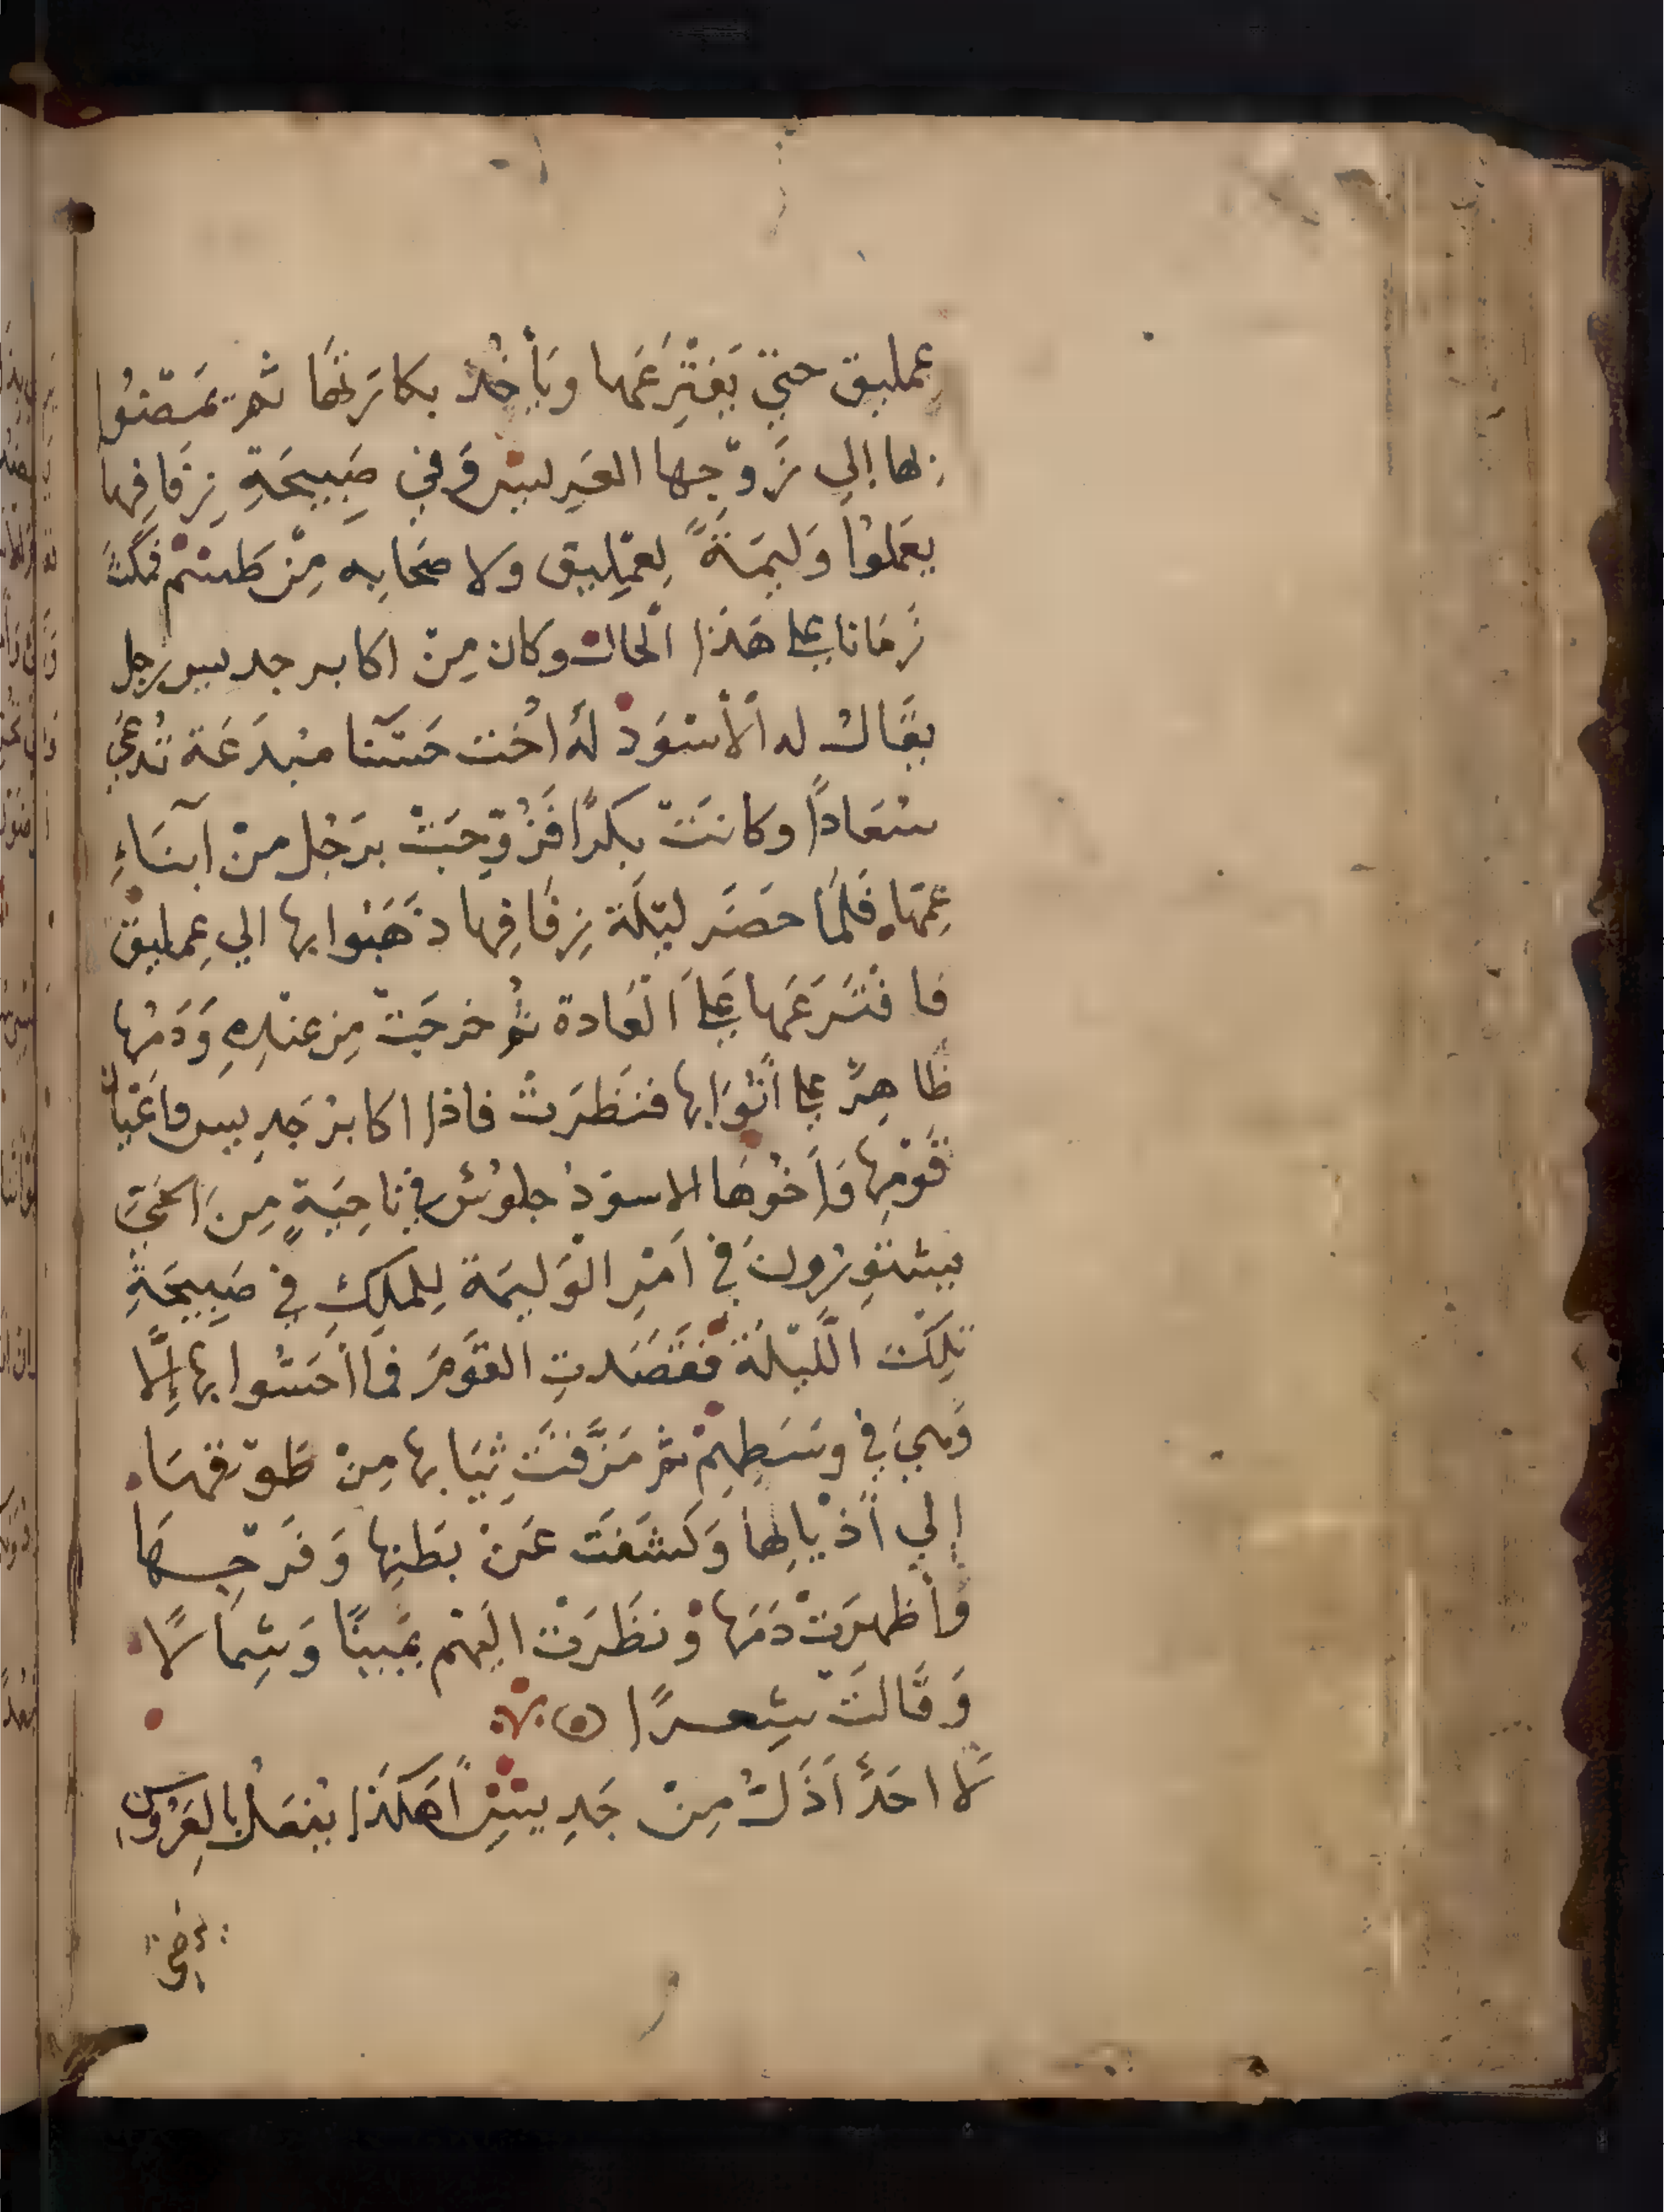 عمليق حتيّ يَفتَرِعَها ويَأخُد بكارَتهَا ثم يمَضّوُا
بِها إلي زَوّجها العَريسْ وَفي صَبِيحَةِ زِفَافِها
يعَملوُا وَليمَةً لِعمِليق ولا صحَابِه مِنْ طسْمْ فمكَثَ
زَمَانا علي هَذا اَلحالْ وكان مِنْ اكابر جديس رجل
يقَالُ له اَلأسْوَدْ لهُ اخُت حَسَنا مبْدَعَة تُدعَيَ
سُعَاداً وكانتَ بِكرًا فَزُوِّجَتْ برَجُل مِنْ أبنَاءِ
عِمّهَا فَلَمَا حضَر ليْلَة زِفَافِها ذهَبوُا بها الي عِمليق
فافْترَعَها عَلَي اَلعَادة ثُمَ خرجَتْ مِن عنْدِهِ وَدَمُها
ظَاهِرٌ علي أثْوَابها فنَظرَتْ فاذا اكابرْ جَدِيس واغْيانْ
قَوْمِها وَأخُوهَا الاسوَدْ جلوُسْ في نَاحِيَةٍ مِنَ الحَيّ
يسْتَوِرُونَ في اَمْرِ الوَليمَة لِلملِكِ في صَبِيحَةِ
تلِكَْ اللَّيْلَة فقَصَدتِ القوَمَ فمَا أحَسّوا بها إلَّا
وَهيَ في وسَطِهِمْ ثم مَزَّقَتَ ثِيَابها مِنْ طَوْقهَا
إلي أذْيالِها وَكشَفَتَ عَنْ بَطنِها وَفَرْجِهَا
وأظهرَتْ دَمَها وْنظَرَتْ اليَهْم يمَينًا وَشِمَالًا
وَقَالتَ شِعرًا
لَا احَدٌ اَذَلُّ مِنْ جَدِيسِ أَهَكَذا يفْعَلُ بالعَرُوسِ